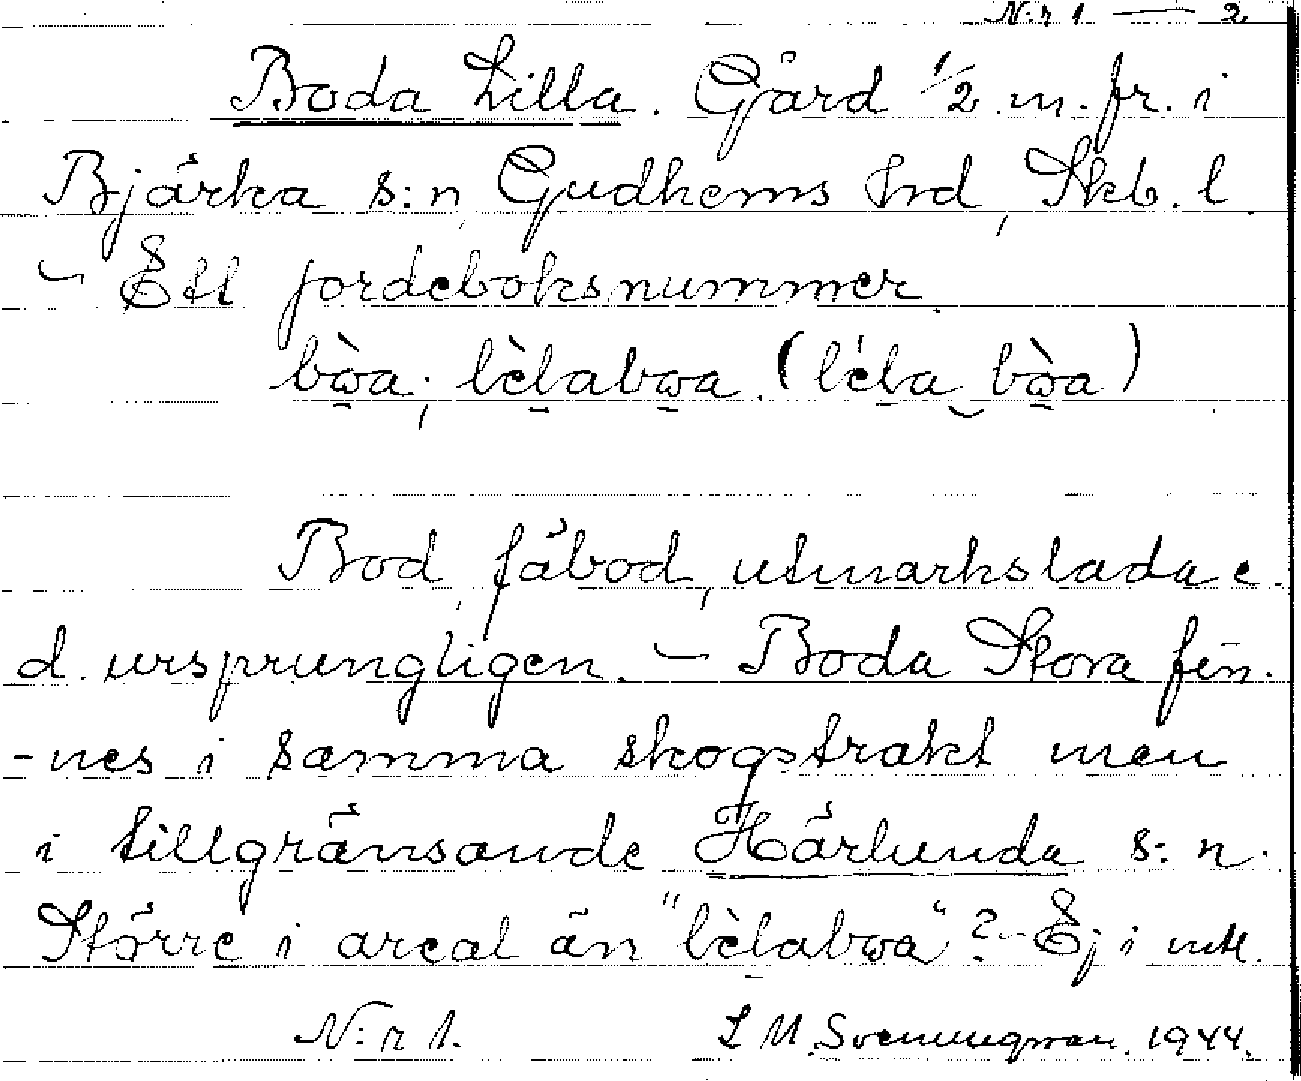 N:r 1 — 2
Boda Lilla. Gård 1/2 m. fr. i
Bjärka s:n, Gudhems hrd, Skb. l.
– Ett jordeboksnummer.
bòa; lèlaboa. (léla bòa)
Bod, fäbod, utmarkslada e.
d. ursprungligen. – Boda Stora fin-
-nes i samma skogstrakt men
i tillgränsande Härlunda s:n.
Större i areal än "lèlaboa"? – Ej i mtl.
N:r 1. L M. Svenungsson. 1944.